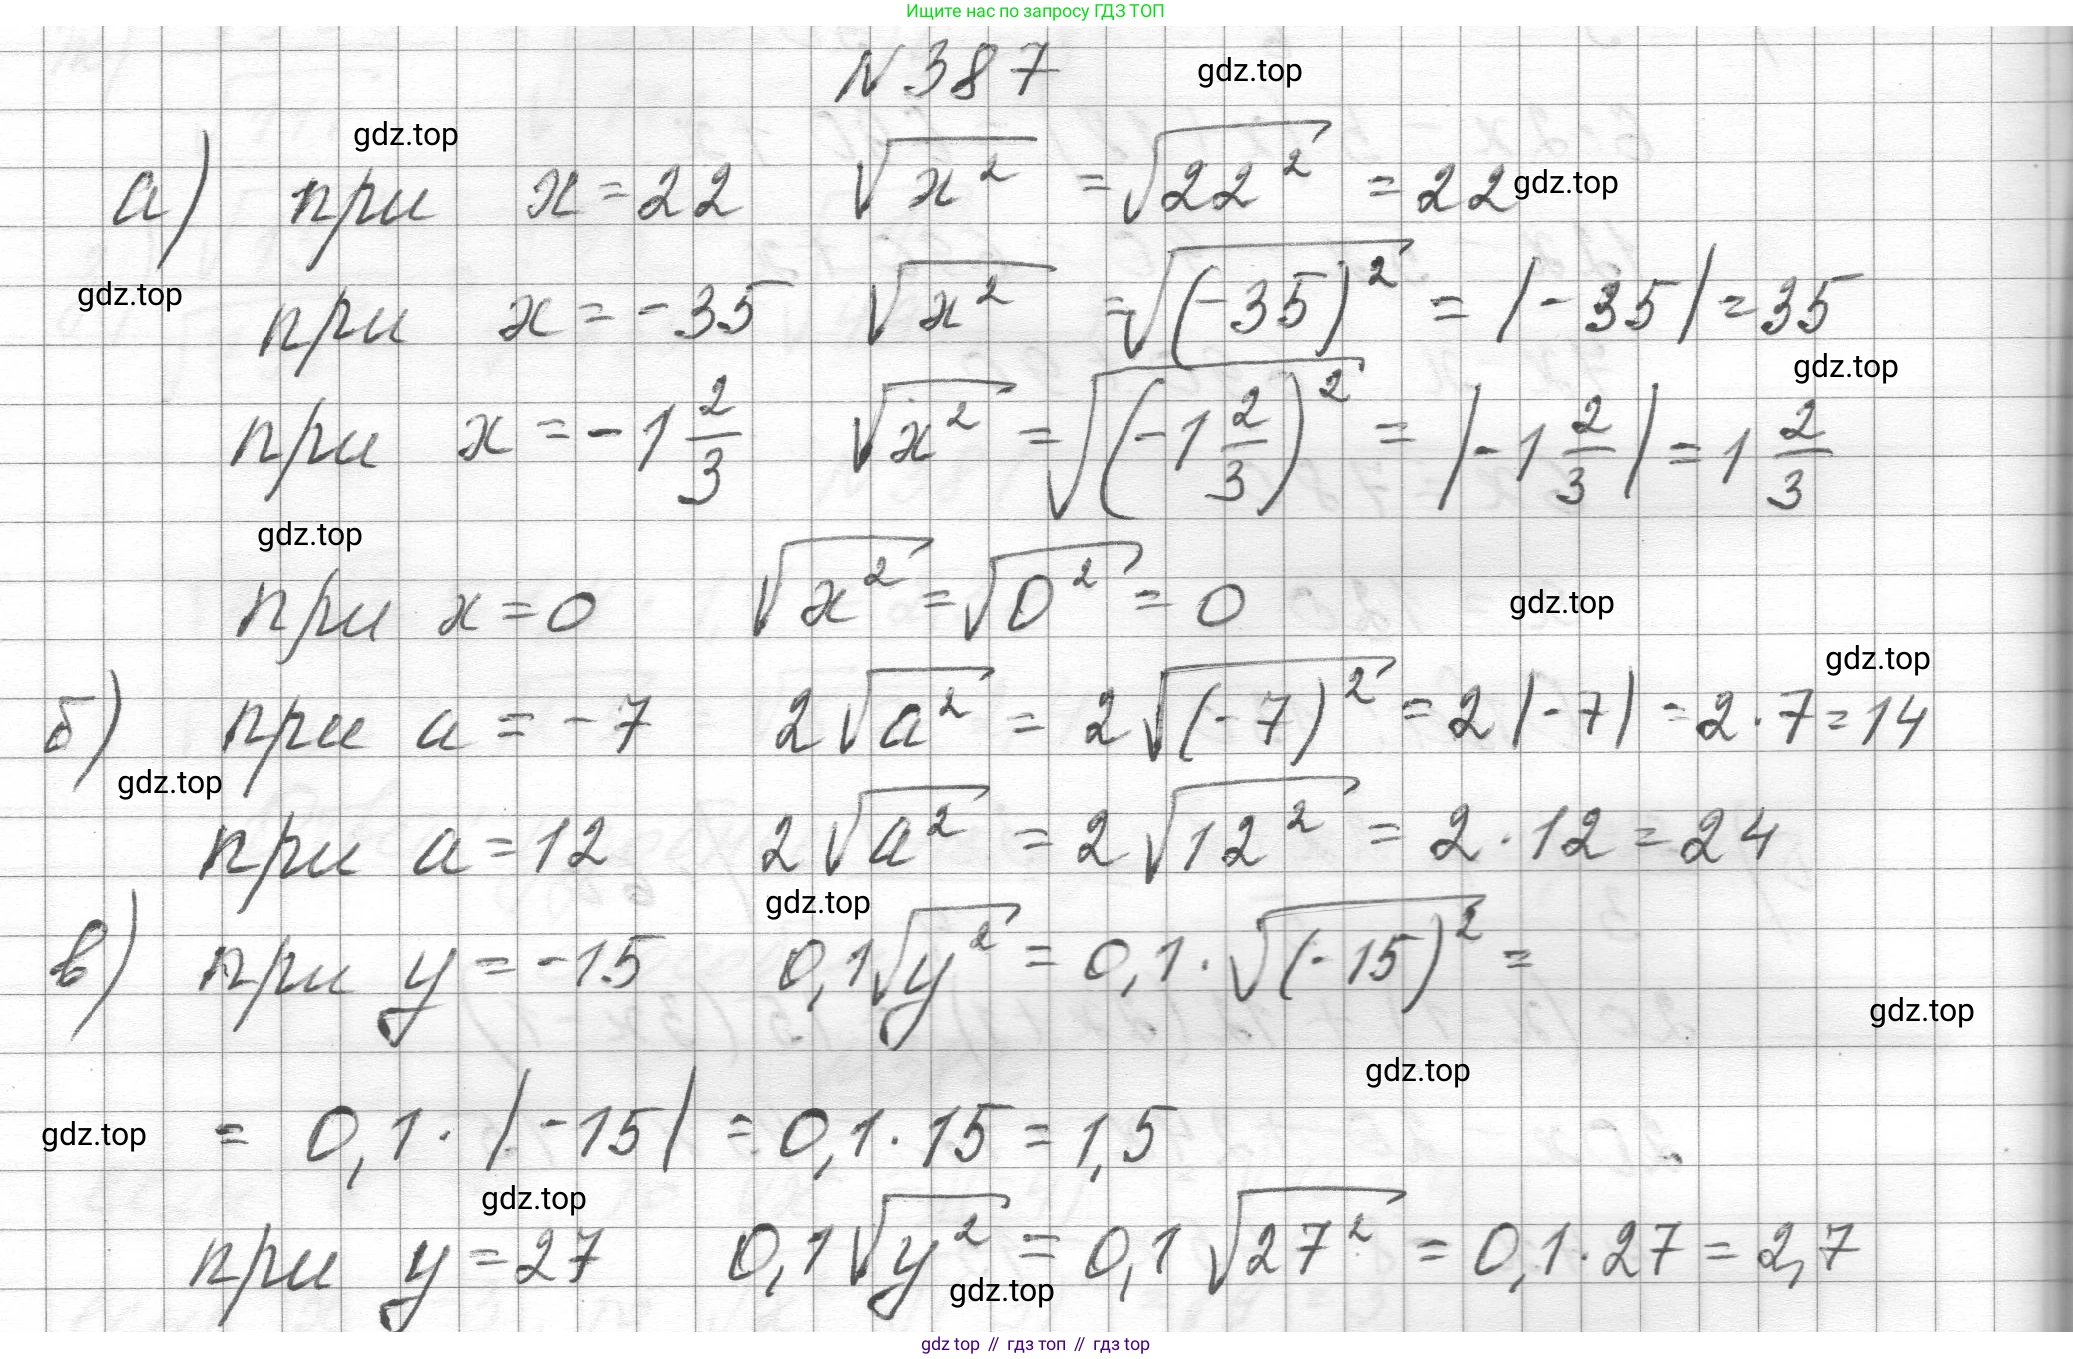 Ищите нас по запросу ГДЗ ТОП
N 387
gdz.top
gdz.top
а) при x = 22 √x² = √22² = 22
gdz.top
gdz.top
при x = -35 √x² = √(-35)² = |-35| = 35
gdz.top
при x = -1 2/3 √x² = √(-1 2/3)² = |-1 2/3| = 1 2/3
gdz.top
при x = 0 √x² = √0² = 0
gdz.top
gdz.top
б) при a = -7 2√a² = 2√(-7)² = 2|-7| = 2·7 = 14
gdz.top
при a = 12 2√a² = 2√12² = 2·12 = 24
gdz.top
в) при y = -15 0,1√y² = 0,1·√(-15)² =
gdz.top
gdz.top
= 0,1·|-15| = 0,1·15 = 1,5
gdz.top
gdz.top
при y = 27 0,1√y² = 0,1√27² = 0,1·27 = 2,7
gdz.top
gdz top // гдз топ // гдз top